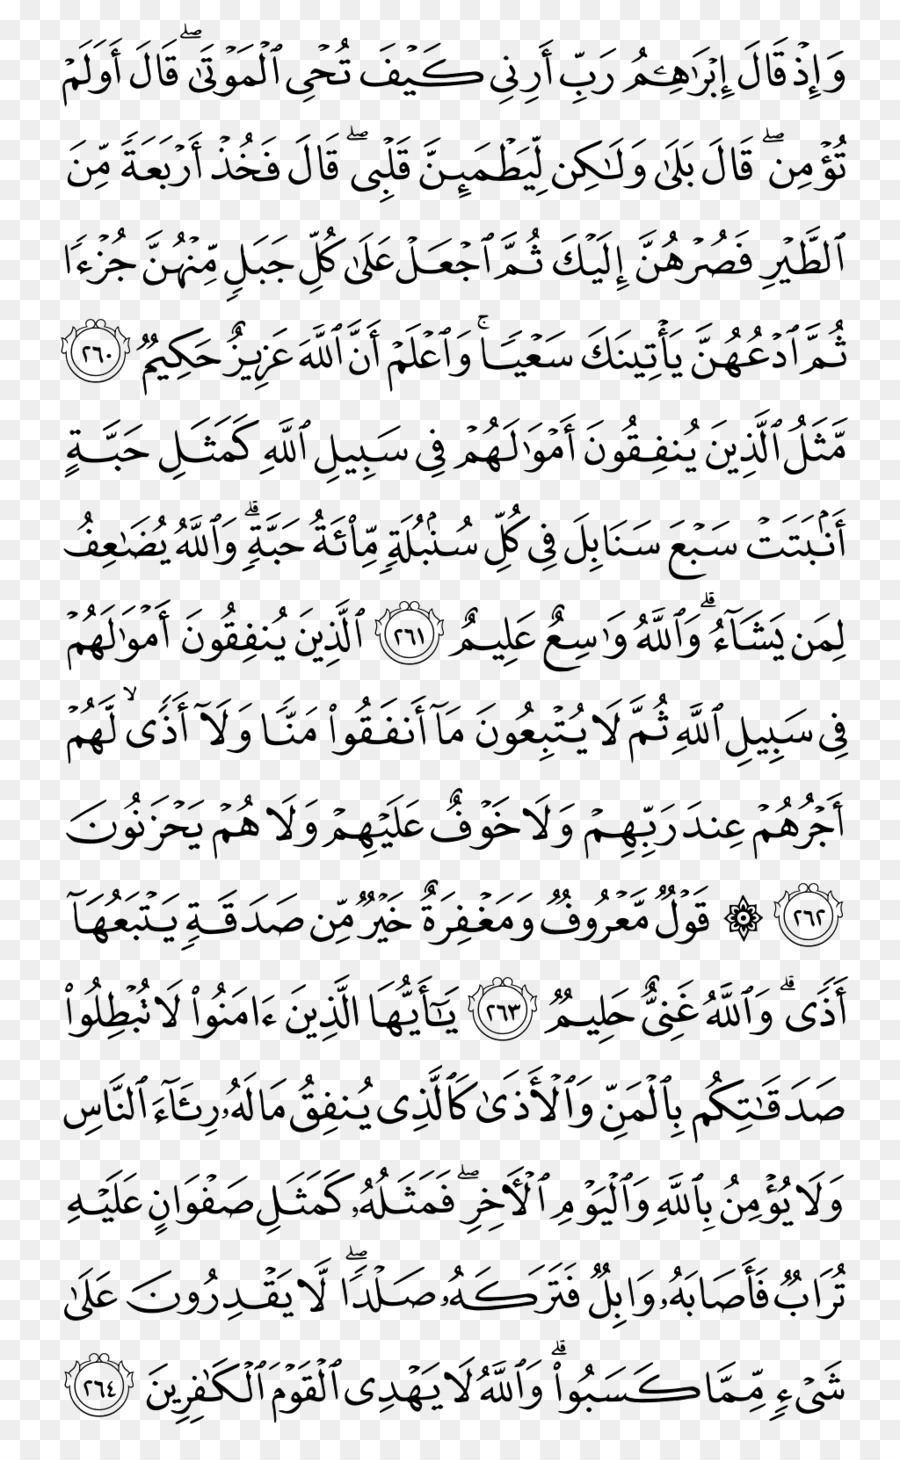 وَإِذۡ قَالَ إِبۡرَٰهِـۧمُ رَبِّ أَرِنِي كَيۡفَ تُحۡيِ ٱلۡمَوۡتَىٰۖ قَالَ أَوَلَمۡ
تُؤۡمِنۖ قَالَ بَلَىٰ وَلَٰكِن لِّيَطۡمَئِنَّ قَلۡبِيۖ قَالَ فَخُذۡ أَرۡبَعَةٗ مِّنَ
ٱلطَّيۡرِ فَصُرۡهُنَّ إِلَيۡكَ ثُمَّ ٱجۡعَلۡ عَلَىٰ كُلِّ جَبَلٖ مِّنۡهُنَّ جُزۡءٗا
ثُمَّ ٱدۡعُهُنَّ يَأۡتِينَكَ سَعۡيٗاۚ وَٱعۡلَمۡ أَنَّ ٱللَّهَ عَزِيزٌ حَكِيمٞ ٢٦٠
مَّثَلُ ٱلَّذِينَ يُنفِقُونَ أَمۡوَٰلَهُمۡ فِي سَبِيلِ ٱللَّهِ كَمَثَلِ حَبَّةٍ
أَنۢبَتَتۡ سَبۡعَ سَنَابِلَ فِي كُلِّ سُنۢبُلَةٖ مِّاْئَةُ حَبَّةٖۗ وَٱللَّهُ يُضَٰعِفُ
لِمَن يَشَآءُۗ وَٱللَّهُ وَٰسِعٌ عَلِيمٌ ٢٦١ ٱلَّذِينَ يُنفِقُونَ أَمۡوَٰلَهُمۡ
فِي سَبِيلِ ٱللَّهِ ثُمَّ لَا يُتۡبِعُونَ مَآ أَنفَقُواْ مَنّٗا وَلَآ أَذٗى لَّهُمۡ
أَجۡرُهُمۡ عِندَ رَبِّهِمۡ وَلَا خَوۡفٌ عَلَيۡهِمۡ وَلَا هُمۡ يَحۡزَنُونَ
٢٦٢ ۞ قَوۡلٞ مَّعۡرُوفٞ وَمَغۡفِرَةٌ خَيۡرٞ مِّن صَدَقَةٖ يَتۡبَعُهَآ
أَذٗىۗ وَٱللَّهُ غَنِيٌّ حَلِيمٞ ٢٦٣ يَٰٓأَيُّهَا ٱلَّذِينَ ءَامَنُواْ لَا تُبۡطِلُواْ
صَدَقَٰتِكُم بِٱلۡمَنِّ وَٱلۡأَذَىٰ كَٱلَّذِي يُنفِقُ مَالَهُۥ رِئَآءَ ٱلنَّاسِ
وَلَا يُؤۡمِنُ بِٱللَّهِ وَٱلۡيَوۡمِ ٱلۡأٓخِرِۖ فَمَثَلُهُۥ كَمَثَلِ صَفۡوَانٍ عَلَيۡهِ
تُرَابٞ فَأَصَابَهُۥ وَابِلٞ فَتَرَكَهُۥ صَلۡدٗاۖ لَّا يَقۡدِرُونَ عَلَىٰ
شَيۡءٖ مِّمَّا كَسَبُواْۗ وَٱللَّهُ لَا يَهۡدِي ٱلۡقَوۡمَ ٱلۡكَٰفِرِينَ ٢٦٤